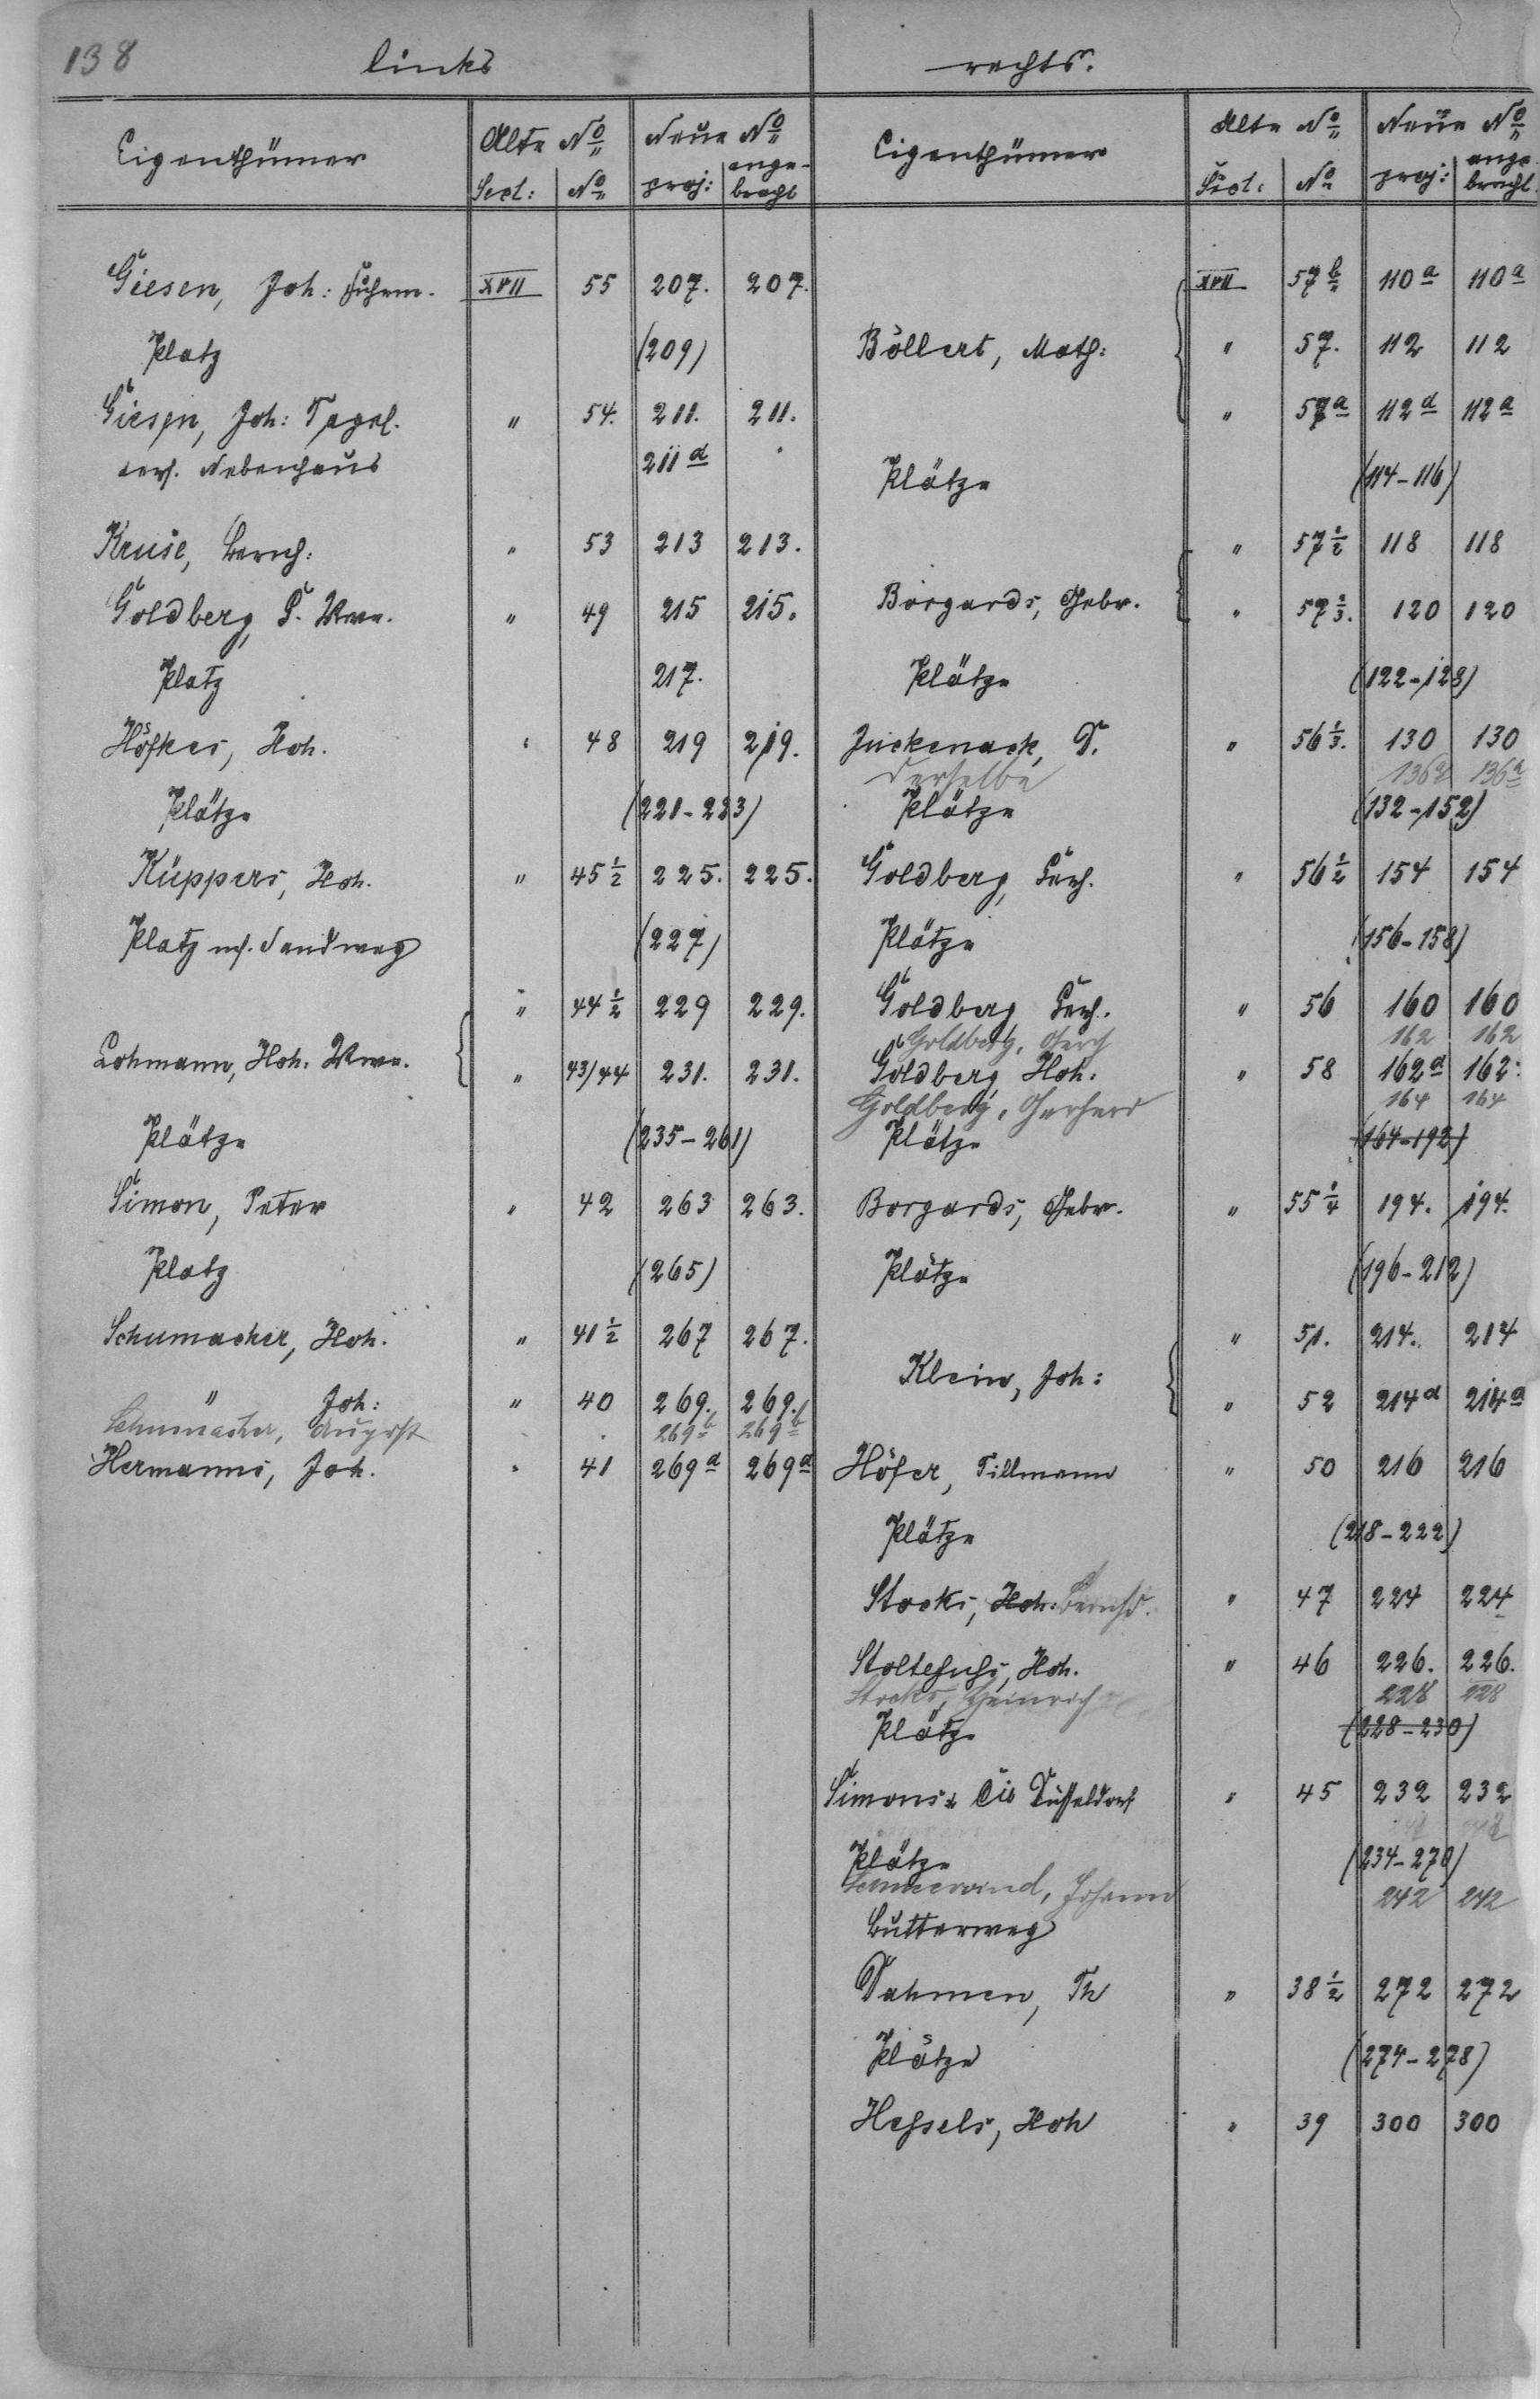 138
links
rechts.
Eigenthümer Alte No Neue No Eigenthümer Alte No Neue No
Sect: No proj: ange-bracht Sect: No proj: ange-bracht
Giesen, Joh: Fuhrm. XVII 55 207. 207. XVII 57b 110a 110a
Platz (209) Böllert, Math: " 57. 112 112
Giesen, Joh: Tagel. " 54. 211. 211. " 57a 112a 112a
ders. Nebenhaus 211a Plätze (114-116)
Kruse, Bernh: " 53 213 213. " 57½ 118 118
Goldberg, P. Wwe. " 49 215 215. Borgards, Gebr. " 57⅓. 120 120
Platz 217. Plätze (122-128)
Höfkes, Hch. " 48 219 219. Juckenack, D. " 56⅓. 130 130
derselbe 136a 136a
Plätze (221-223) Plätze (132-152)
Küppers, Hch. " 45½ 225. 225. Goldberg, Ferd. " 56½ 154 154
Platz u. Sandweg (227) Plätze (156-158)
" 44½ 229 229. Goldberg Ferd. " 56 160 160
Goldberg, Gerh 162 162
Lohmann, Hch. Wwe. " 43/44 231. 231. Goldberg Hch. " 58 162a 162.
Goldberg, Gerhard 164 164
Plätze (235-261) Plätze (164-192)
Simon, Peter " 42 263 263. Borgards, Gebr. " 55¼ 194. 194.
Platz (265) Plätze (196-212)
Schumacher, Hch. " 41½ 267 267. " 51. 214. 214
Klein, Joh:
" Joh: " 40 269. 269. " 52 214a 214a
Schumacher, August 269b 269b
Hermanns, Joh. " 41 269a 269a Höfer, Tillmann " 50 216 216
Plätze (218-222)
Stocks, Hch. Bernhd. " 47 224 224
Stoltefuss, Hch. " 46 226. 226.
Stocks, Heinrich 228 228
Plätze (228-230)
Simons & Cie Düsseldorf " 45 232 232
Plätze (234-270)
Johann 242 242
Butterweg
Dahmen, Th " 38½ 272 272
Plätze (274-278)
Hessels, Hch " 39 300 300